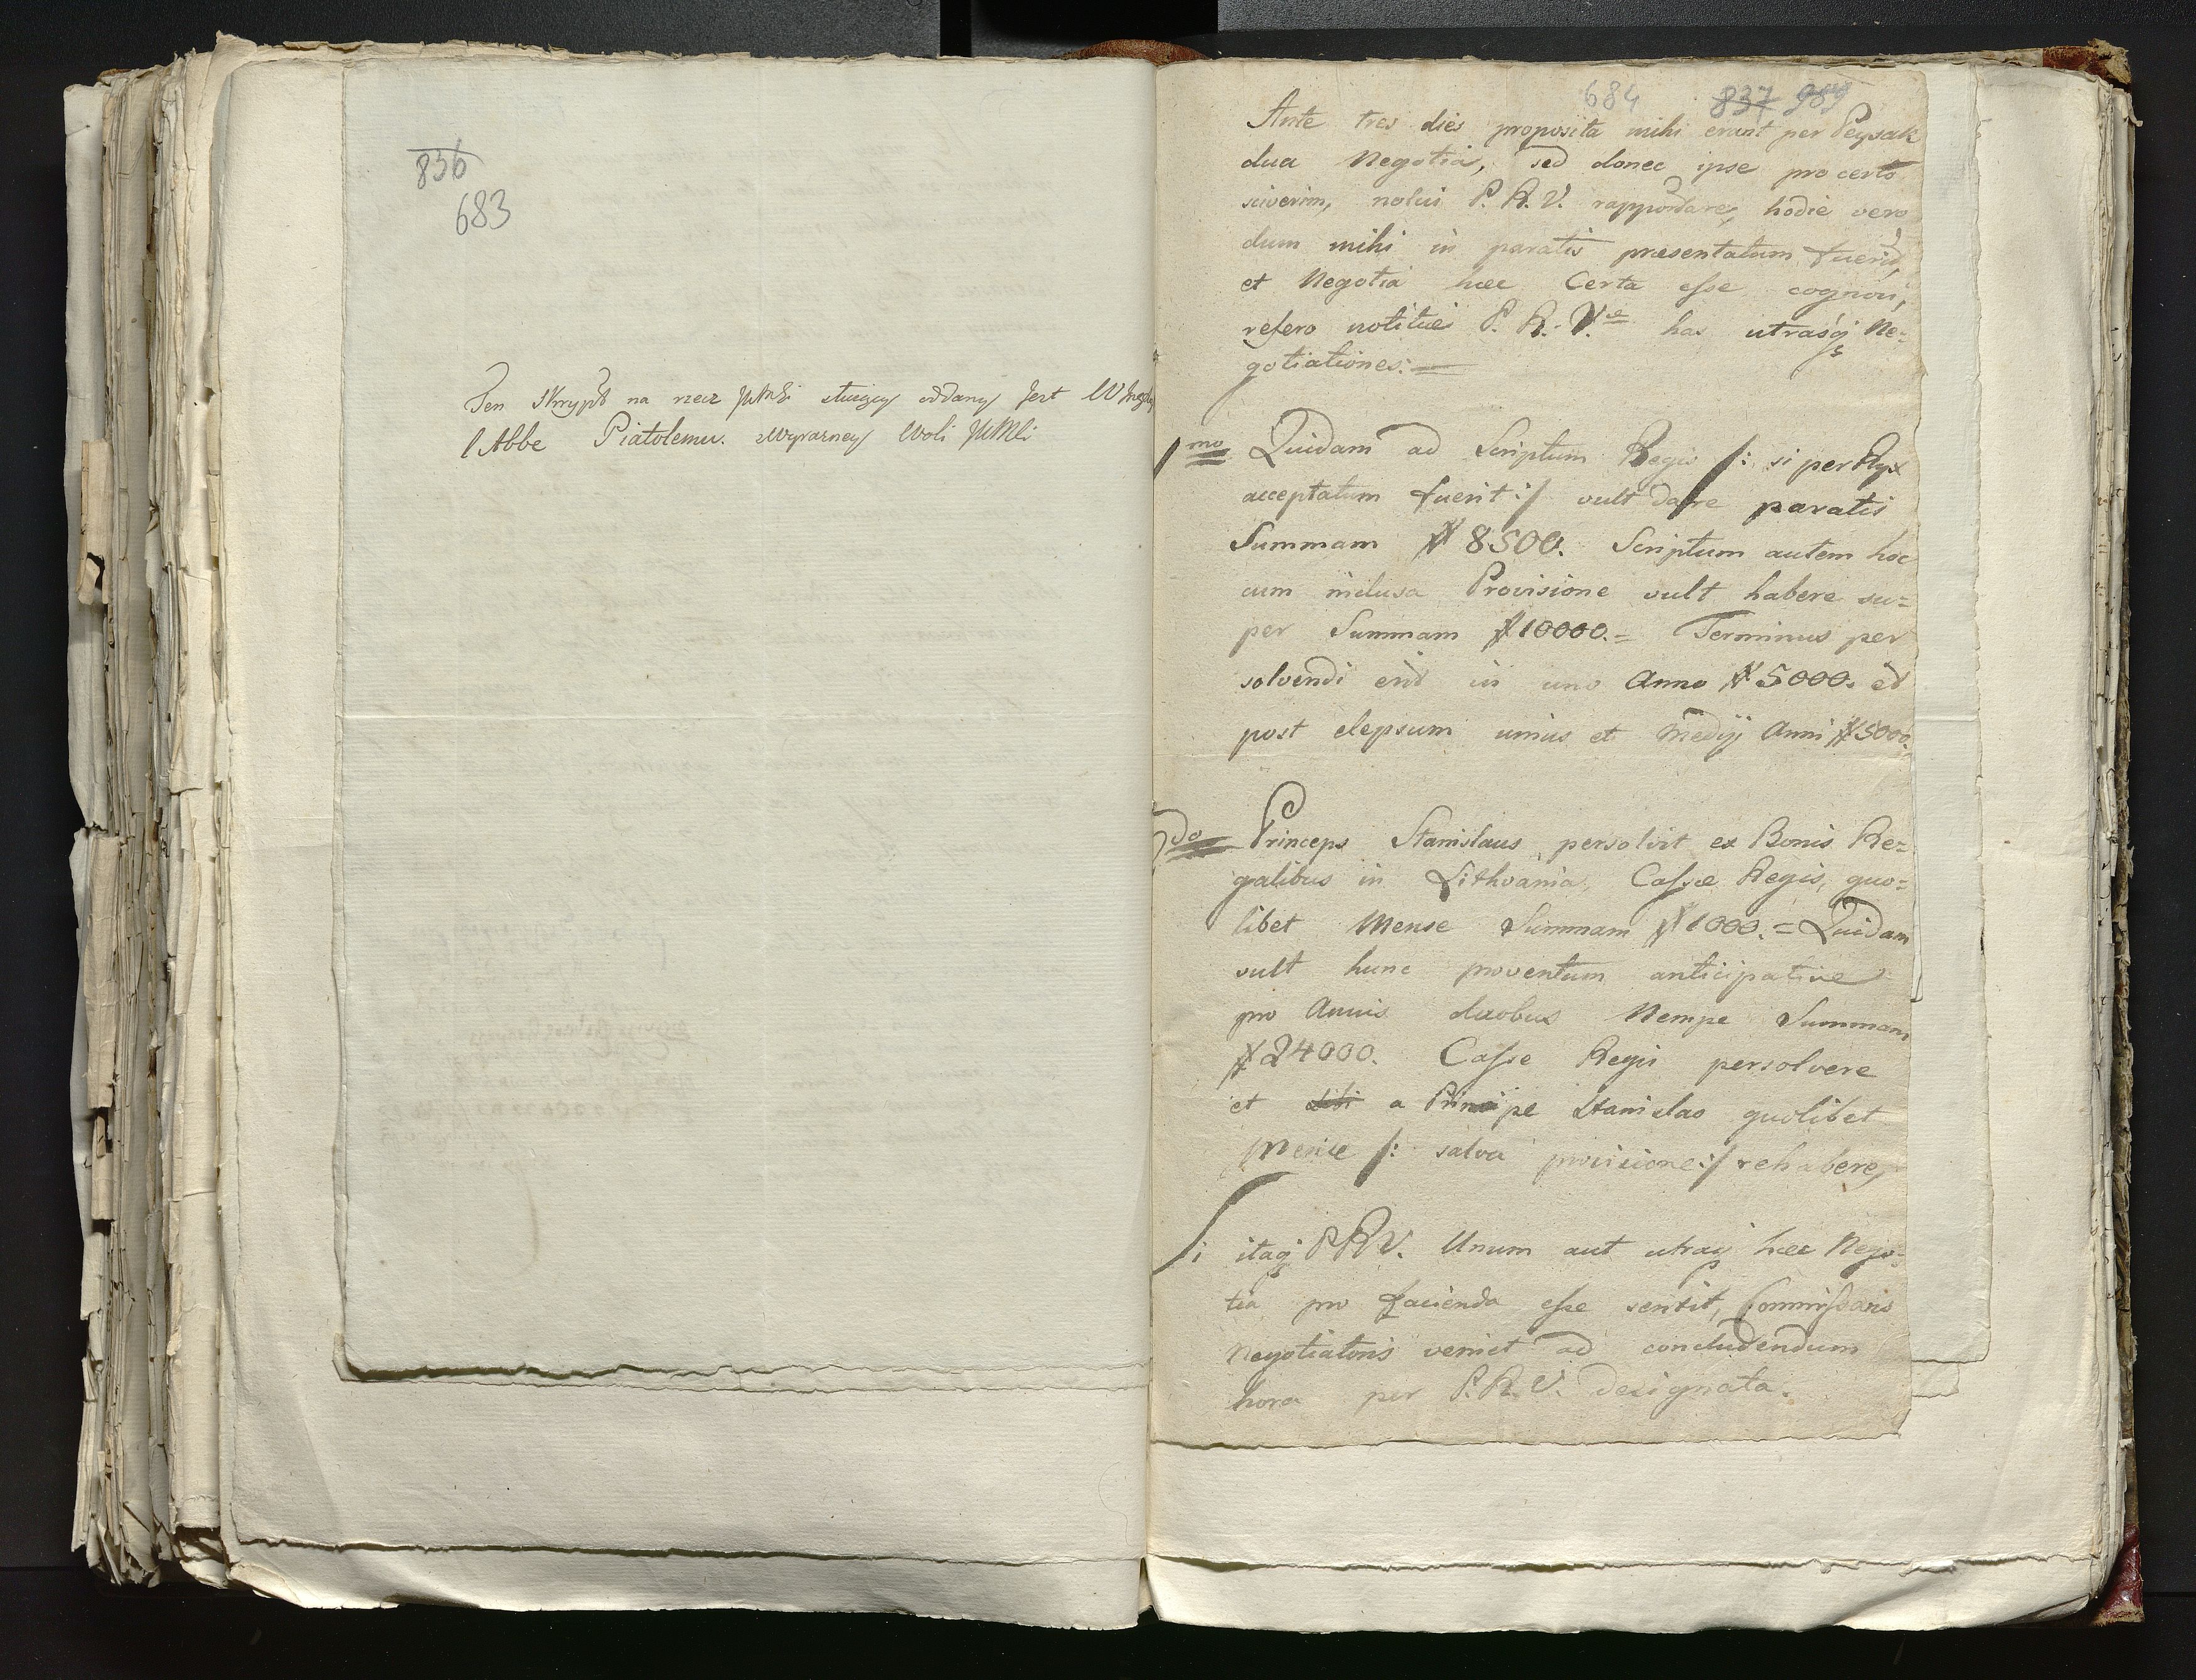 836
683
Ten Skrypt na rzecz JKMci służący oddany jest
l'Abbe Piatolemu. z wyraźney Woli JKMci
684 837 989
Ante tres dies proposita mihi erant per Peysak
dua Negotia, sed donec ipse pro certo
sciverim, nolui P. R. V. rapportare, hodie vero
dum mihi in paratis praesentatum fuerit,
et Negotia hæc Certa esse cognovi,
refero notitiei P. R. V.æ has utrasq Ne=
gotiationes.
1mo Quidam ad Scriptum Regis /: si per Ryx
acceptatum fuerit :/ vult dare paratis
Summam # 8500. Scriptum autem hoc
cum inclusa Provisione vult habere su=
per Summam # 10000.= Terminus per
solvendi erit in uno Anno # 5000. et
post elepsum unius et Medij Anni # 5000.
2do Princeps Stanislaus persolvit ex Bonis Re=
galibus in Lithvania, Cassæ Regis, quo=
libet Mense Summam # 1000.= Quidam
vult hunc proventum anticipative
pro Annis duobus Nempe Summam
# 24000. Casse Regis persolvere
et sibi a Principe Stanislao quolibet
Mense /: salva provisione :/ rehabere,
Si itaq P R V. Unum aut utraq hæc Nego=
tia pro facienda esse sentit, Commissaris
Negotiatoris veniet ad concludendum
hora per P. R. V. designata.